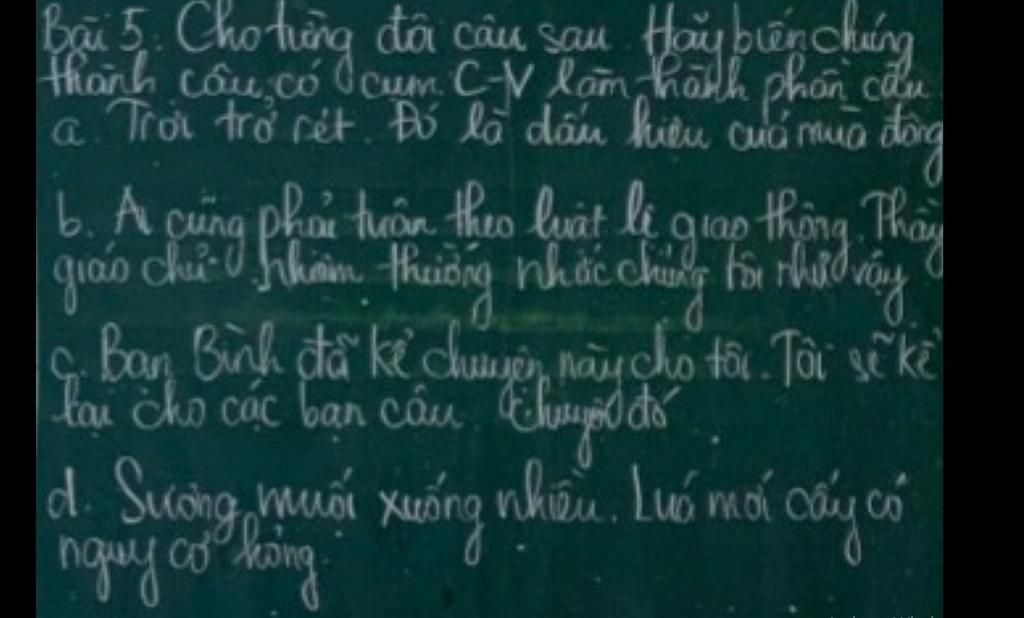 Bài 5. Cho từng đôi câu sau. Hãy biến chúng
thành câu có cụm C-V làm thành phần câu
a. Trời trở rét. Đó là dấu hiệu của mùa đông
b. Ai cũng phải tuân theo luật lệ giao thông. Thầy
giáo chủ nhiệm thường nhắc chúng tôi như vậy
c. Bạn Bình đã kể chuyện này cho tôi. Tôi sẽ kể
lại cho các bạn câu chuyện đó
d. Sương muối xuống nhiều. Luá mới cấy có
nguy cơ hỏng.